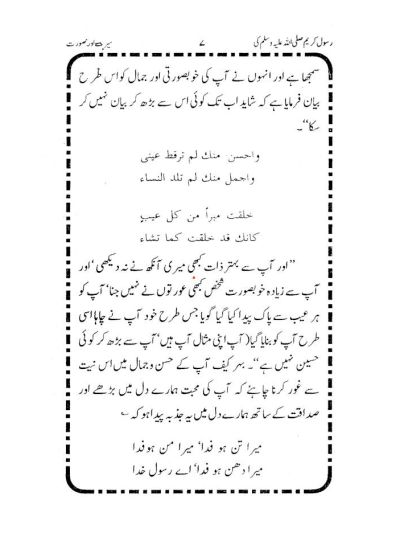 رسول کریم صلی اللہ علیہ وسلم کی ۷ سیرت اور صورت
سمجھا ہے اور انہوں نے آپ کی خوبصورتی اور جمال کو اس طرح
بیان فرمایا ہے کہ شاید اب تک کوئی اس سے بڑھ کر بیان نہیں کر
سکا‘‘۔
واحسن منك لم ترقط عينى
واجمل منك لم تلد النساء
خلقت مبرأ من كل عيب
كانك قد خلقت كما تشاء
’’اور آپ سے بہتر ذات کبھی میری آنکھ نے نہ دیکھی‘ اور
آپ سے زیادہ خوبصورت شخص کبھی عورتوں نے نہیں جنا‘ آپ کو
ہر عیب سے پاک پیدا کیا گیا گویا جس طرح خود آپ نے چاہا اسی
طرح آپ کو بنایا گیا (آپ اپنی مثال آپ ہیں‘ آپ سے بڑھ کر کوئی
حسین نہیں ہے‘‘۔ بہر کیف آپ کے حسن و جمال میں اس نیت
سے غور کرنا چاہئے کہ آپ کی محبت ہمارے دل میں بڑھے اور
صداقت کے ساتھ ہمارے دل میں یہ جذبہ پیدا ہو کہ ؎
میرا تن ہو فدا‘ میرا من ہو فدا
میرا دھن ہو فدا‘ اے رسول خدا